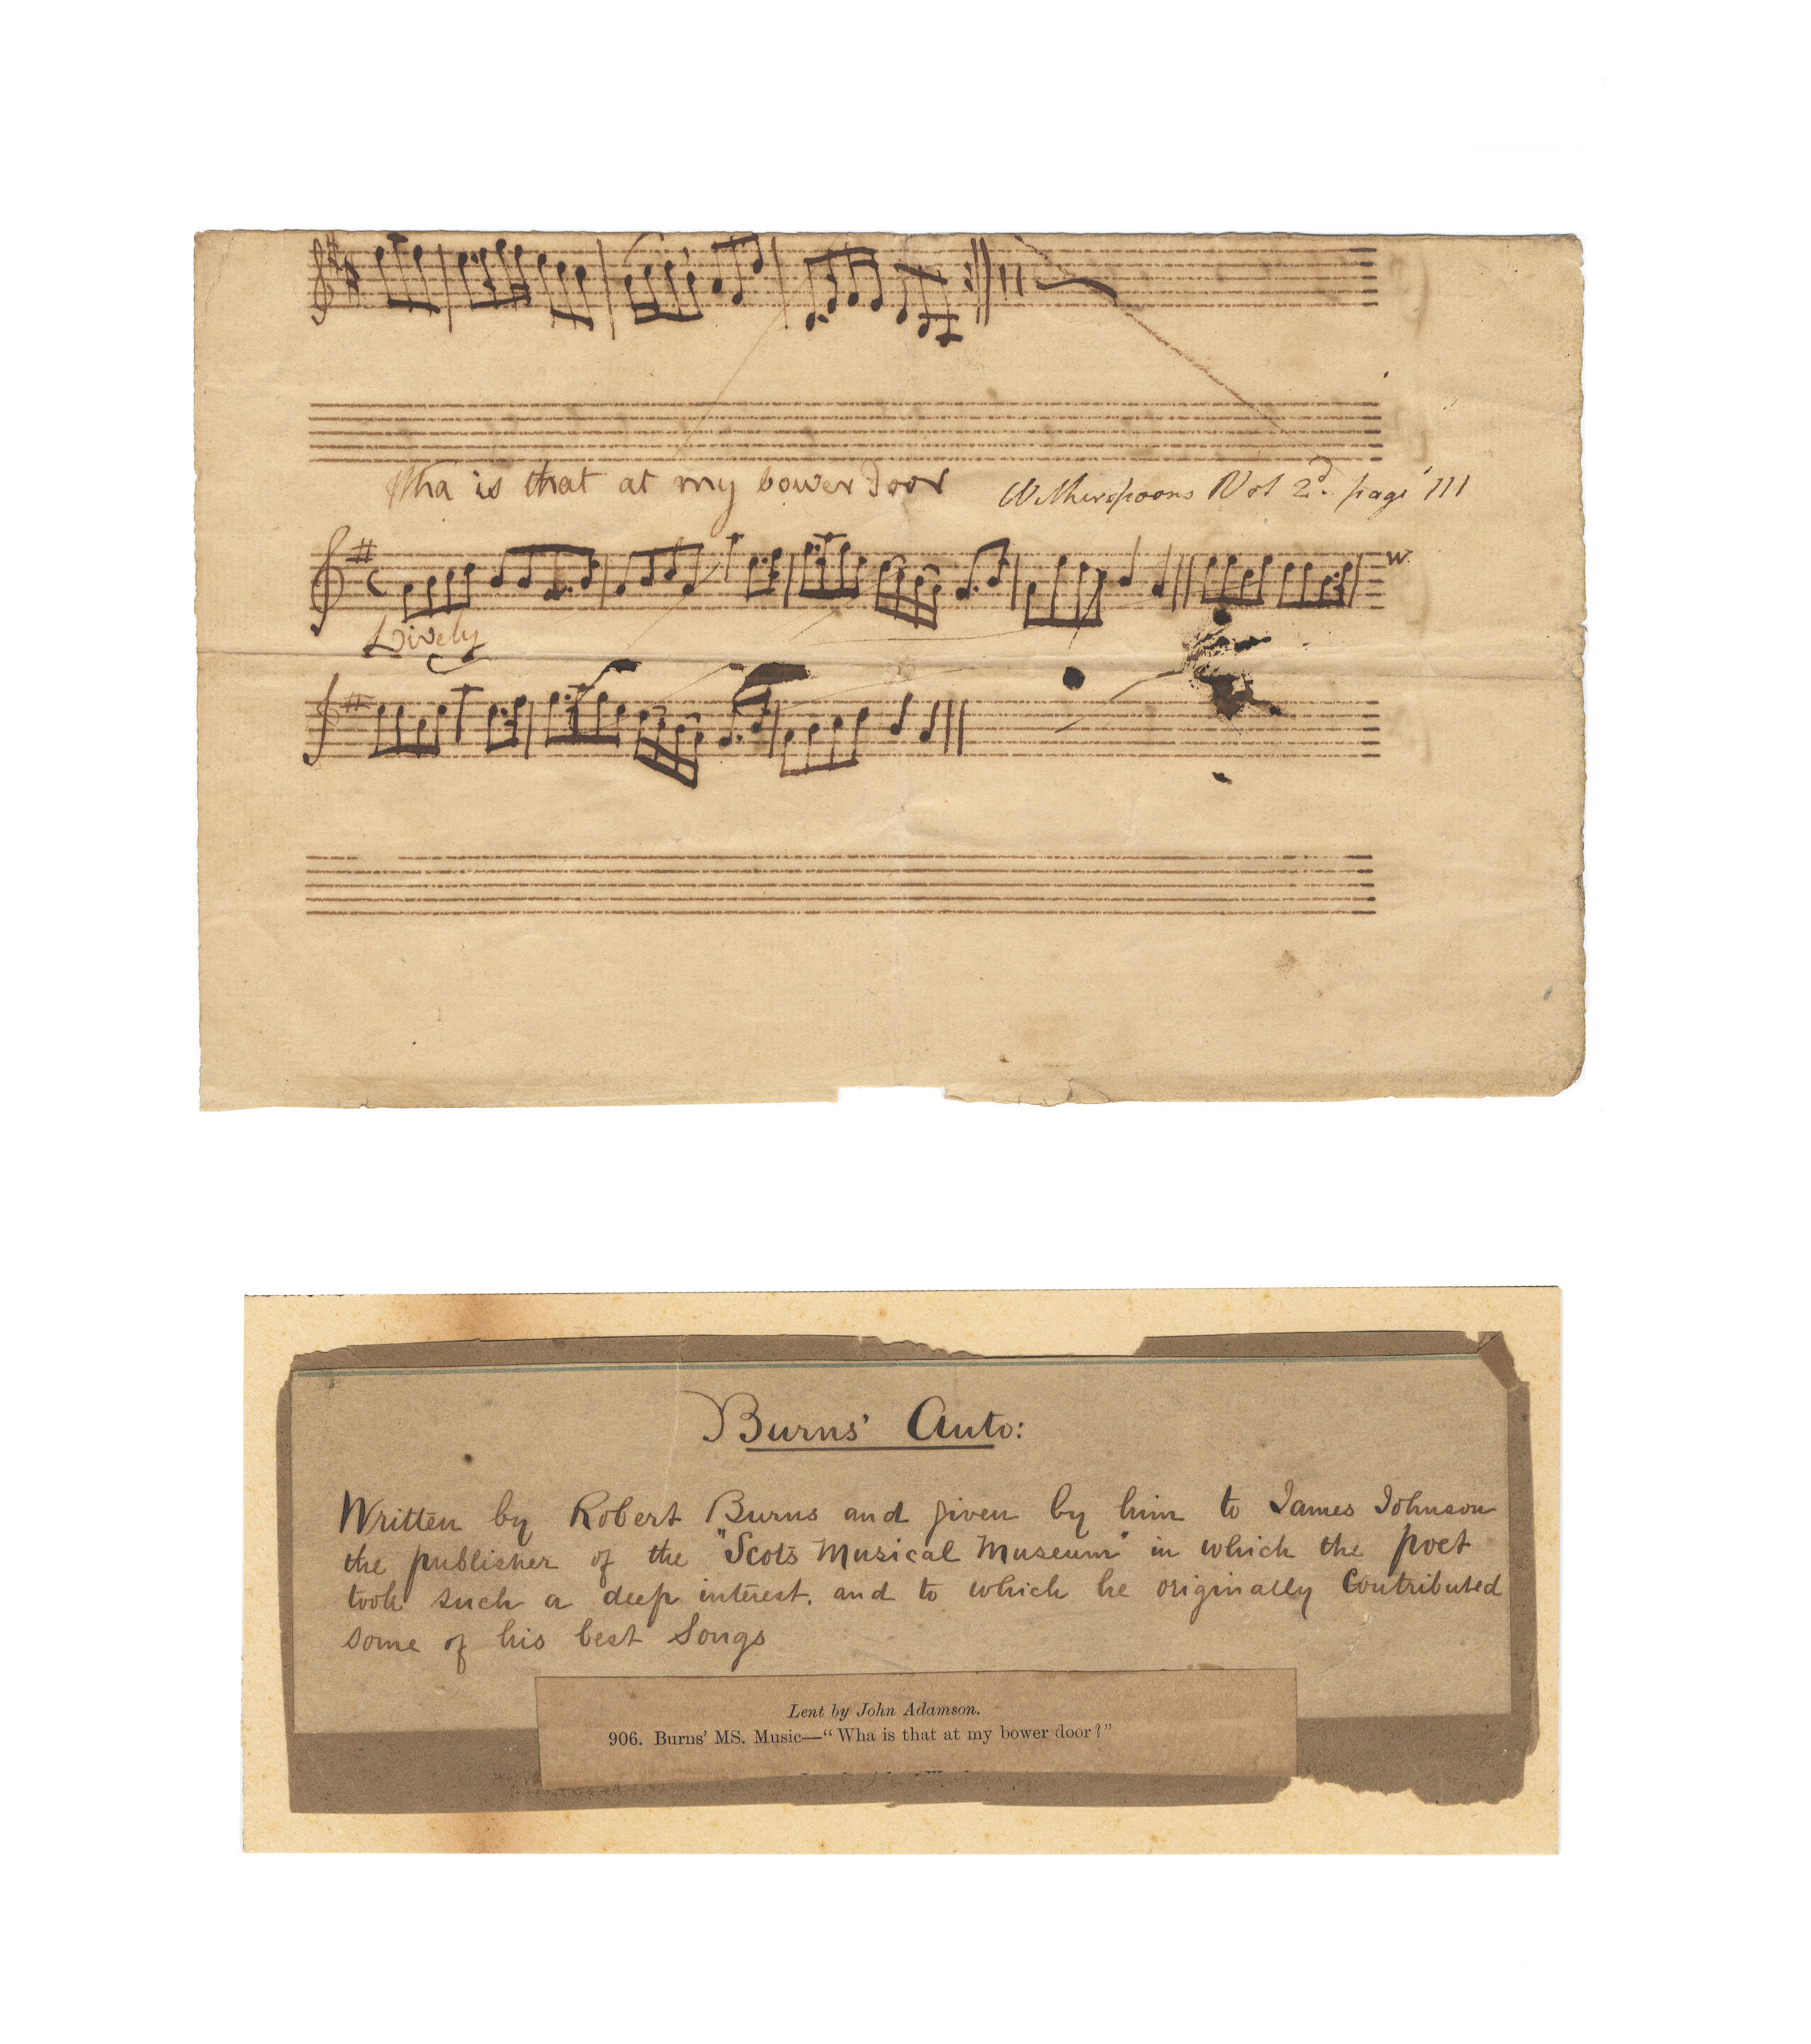 Wha is that at my bower door Witherspoons Vol 2d. page 111
Lively
Burns' Auto:
Written by Robert Burns and given by him to James Johnson
the publisher of the "Scots Musical Museum" in which the poet
took such a deep interest, and to which he originally Contributed
some of his best Songs
Lent by John Adamson.
906. Burns' MS. Music—“Wha is that at my bower door?”